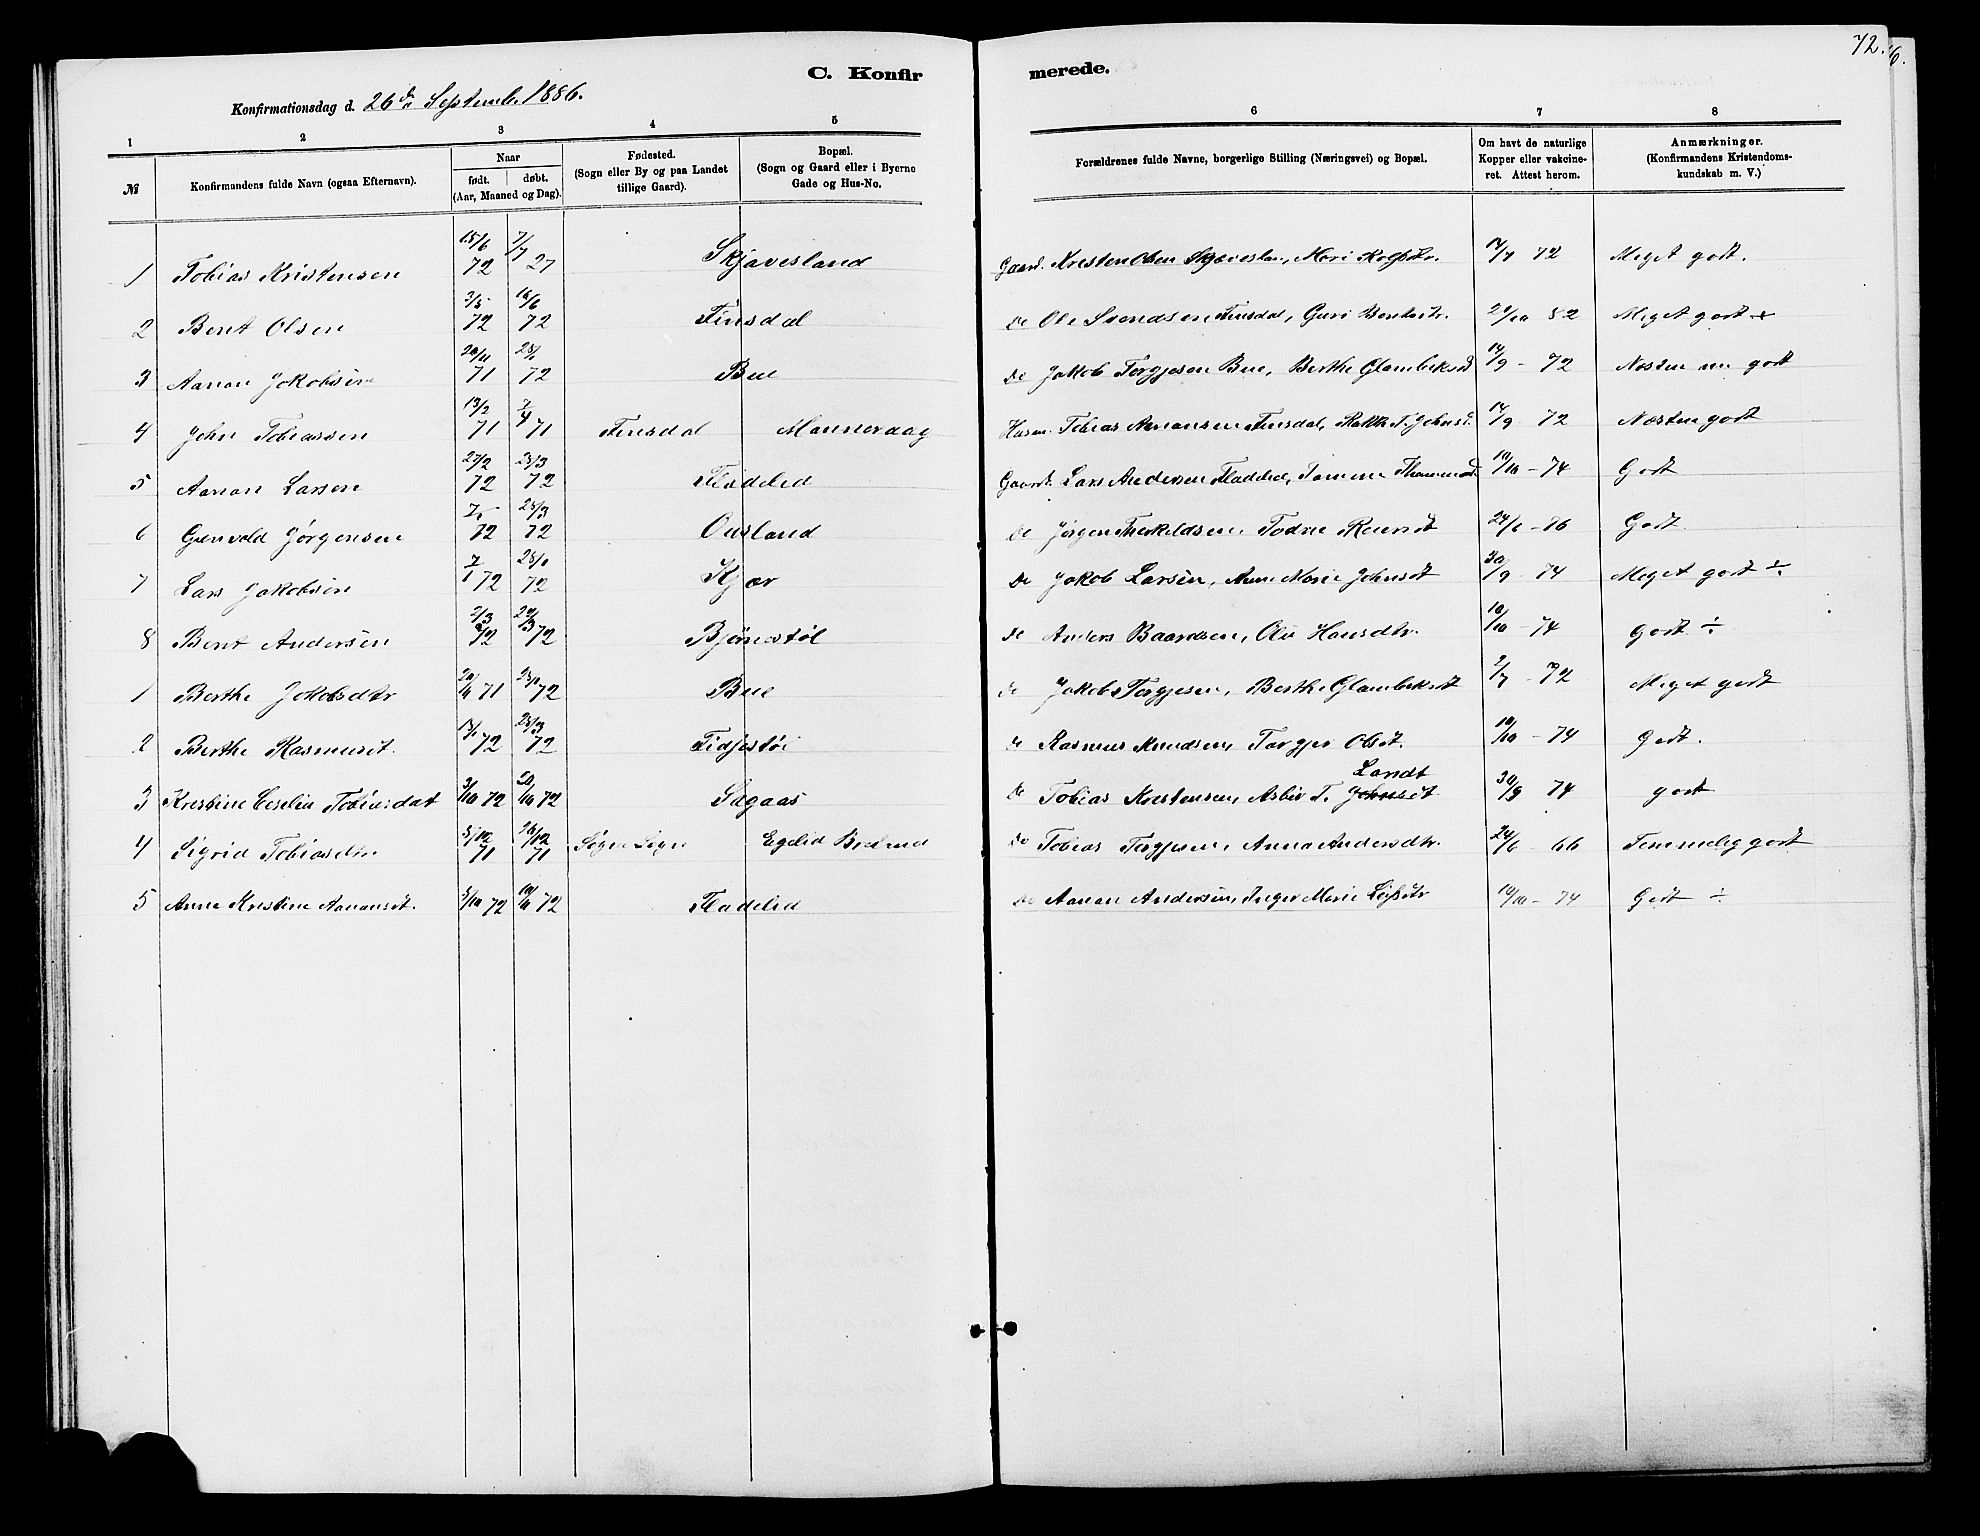 72.
6.
C. Konfirmerede.
Konfirmationsdag d. 26de Septembr 1886.
1 2 3 4 5 6 7 8
№ Konfirmandens fulde Navn (ogsaa Efternavn). Naar født. døbt. (Aar, Maaned og Dag). Fødested. (Sogn eller By og paa Landet tillige Gaard). Bopæl. (Sogn og Gaard eller i Byerne Gade og Hus-No. Forældrenes fulde Navne, borgerlige Stilling (Næringsvei) og Bopæl. Om havt de naturlige Kopper eller vakcineret. Attest herom. Anmærkninger. (Konfirmandens Kristendomskundskab m. V.)
1 Tobias Kristensen 15/6 72 7/7 27 Skjævesland Gaard. Kristen Olsen 72 Meget godt.
2 Bent Olsen 2/5 72 16/6 72 Finsdal Do Ole Svendsen Finsdal, Guri 82 Meget godt
3 Aanon Jakobsen 20/11 71 28/1 72 Bue Do Jakob Torgjesen Bue, Berthe 14/9 - 72 Næsten m. godt
4 John Tobiassen 13/2 71 2/4 71 Finsdal Mannevaag Husm. Tobias Aanonsen Finsdal, 14/9 - 72 Næsten godt
5 Aanon Larsen 27/2 72 25/3 72 Fladelid Gaardb. Lars Andersen Fladelid, 10/10 - 74 Godt
6 Jørgensen 72 25/3 72 Ousland Do Jørgen Therkildsen, Todne 86 Godt
7 Lars Jakobsen 72 28/1 72 Kjær Do Jakob Larsen, Anne Marie Johnsdt 30/9 - 74 Meget godt ÷
8 Bent Andersen 2/3 72 72 Bjørnestøl Do Anders Baardsen, Hansdtr. 10/10 - 74 Godt ÷
1 Berthe Jakobsdtr 20/11 71 28/1 72 Bue Do Jakob Torgjesen, Berthe 2/7 - 72 Meget godt
2 Berthe Rasmusdt. 72 25/3 72 Fidjestøl Do Rasmus Knudsen, Torgjer Olsdt. 10/10 - 74 Godt.
3 Kristine Tobiasdat 3/10 72 20/10 72 Aagaas Do Tobias Kristensen, T. Johnsdt 30/9 74 godt
Landt
4 Sigrid Tobiasdtr 5/12 71 26/12 71 Søgne Sogn Egelid Do Tobias Torgjesen, Anna Andersdtr. 24/6 - 66 Temmelig godt
5 Anne Kristine Aanonsdt. 5/10 72 10/11 72 Fladelid Do Aanon Andersen, Inger Marie 10/10 - 74 Godt ÷